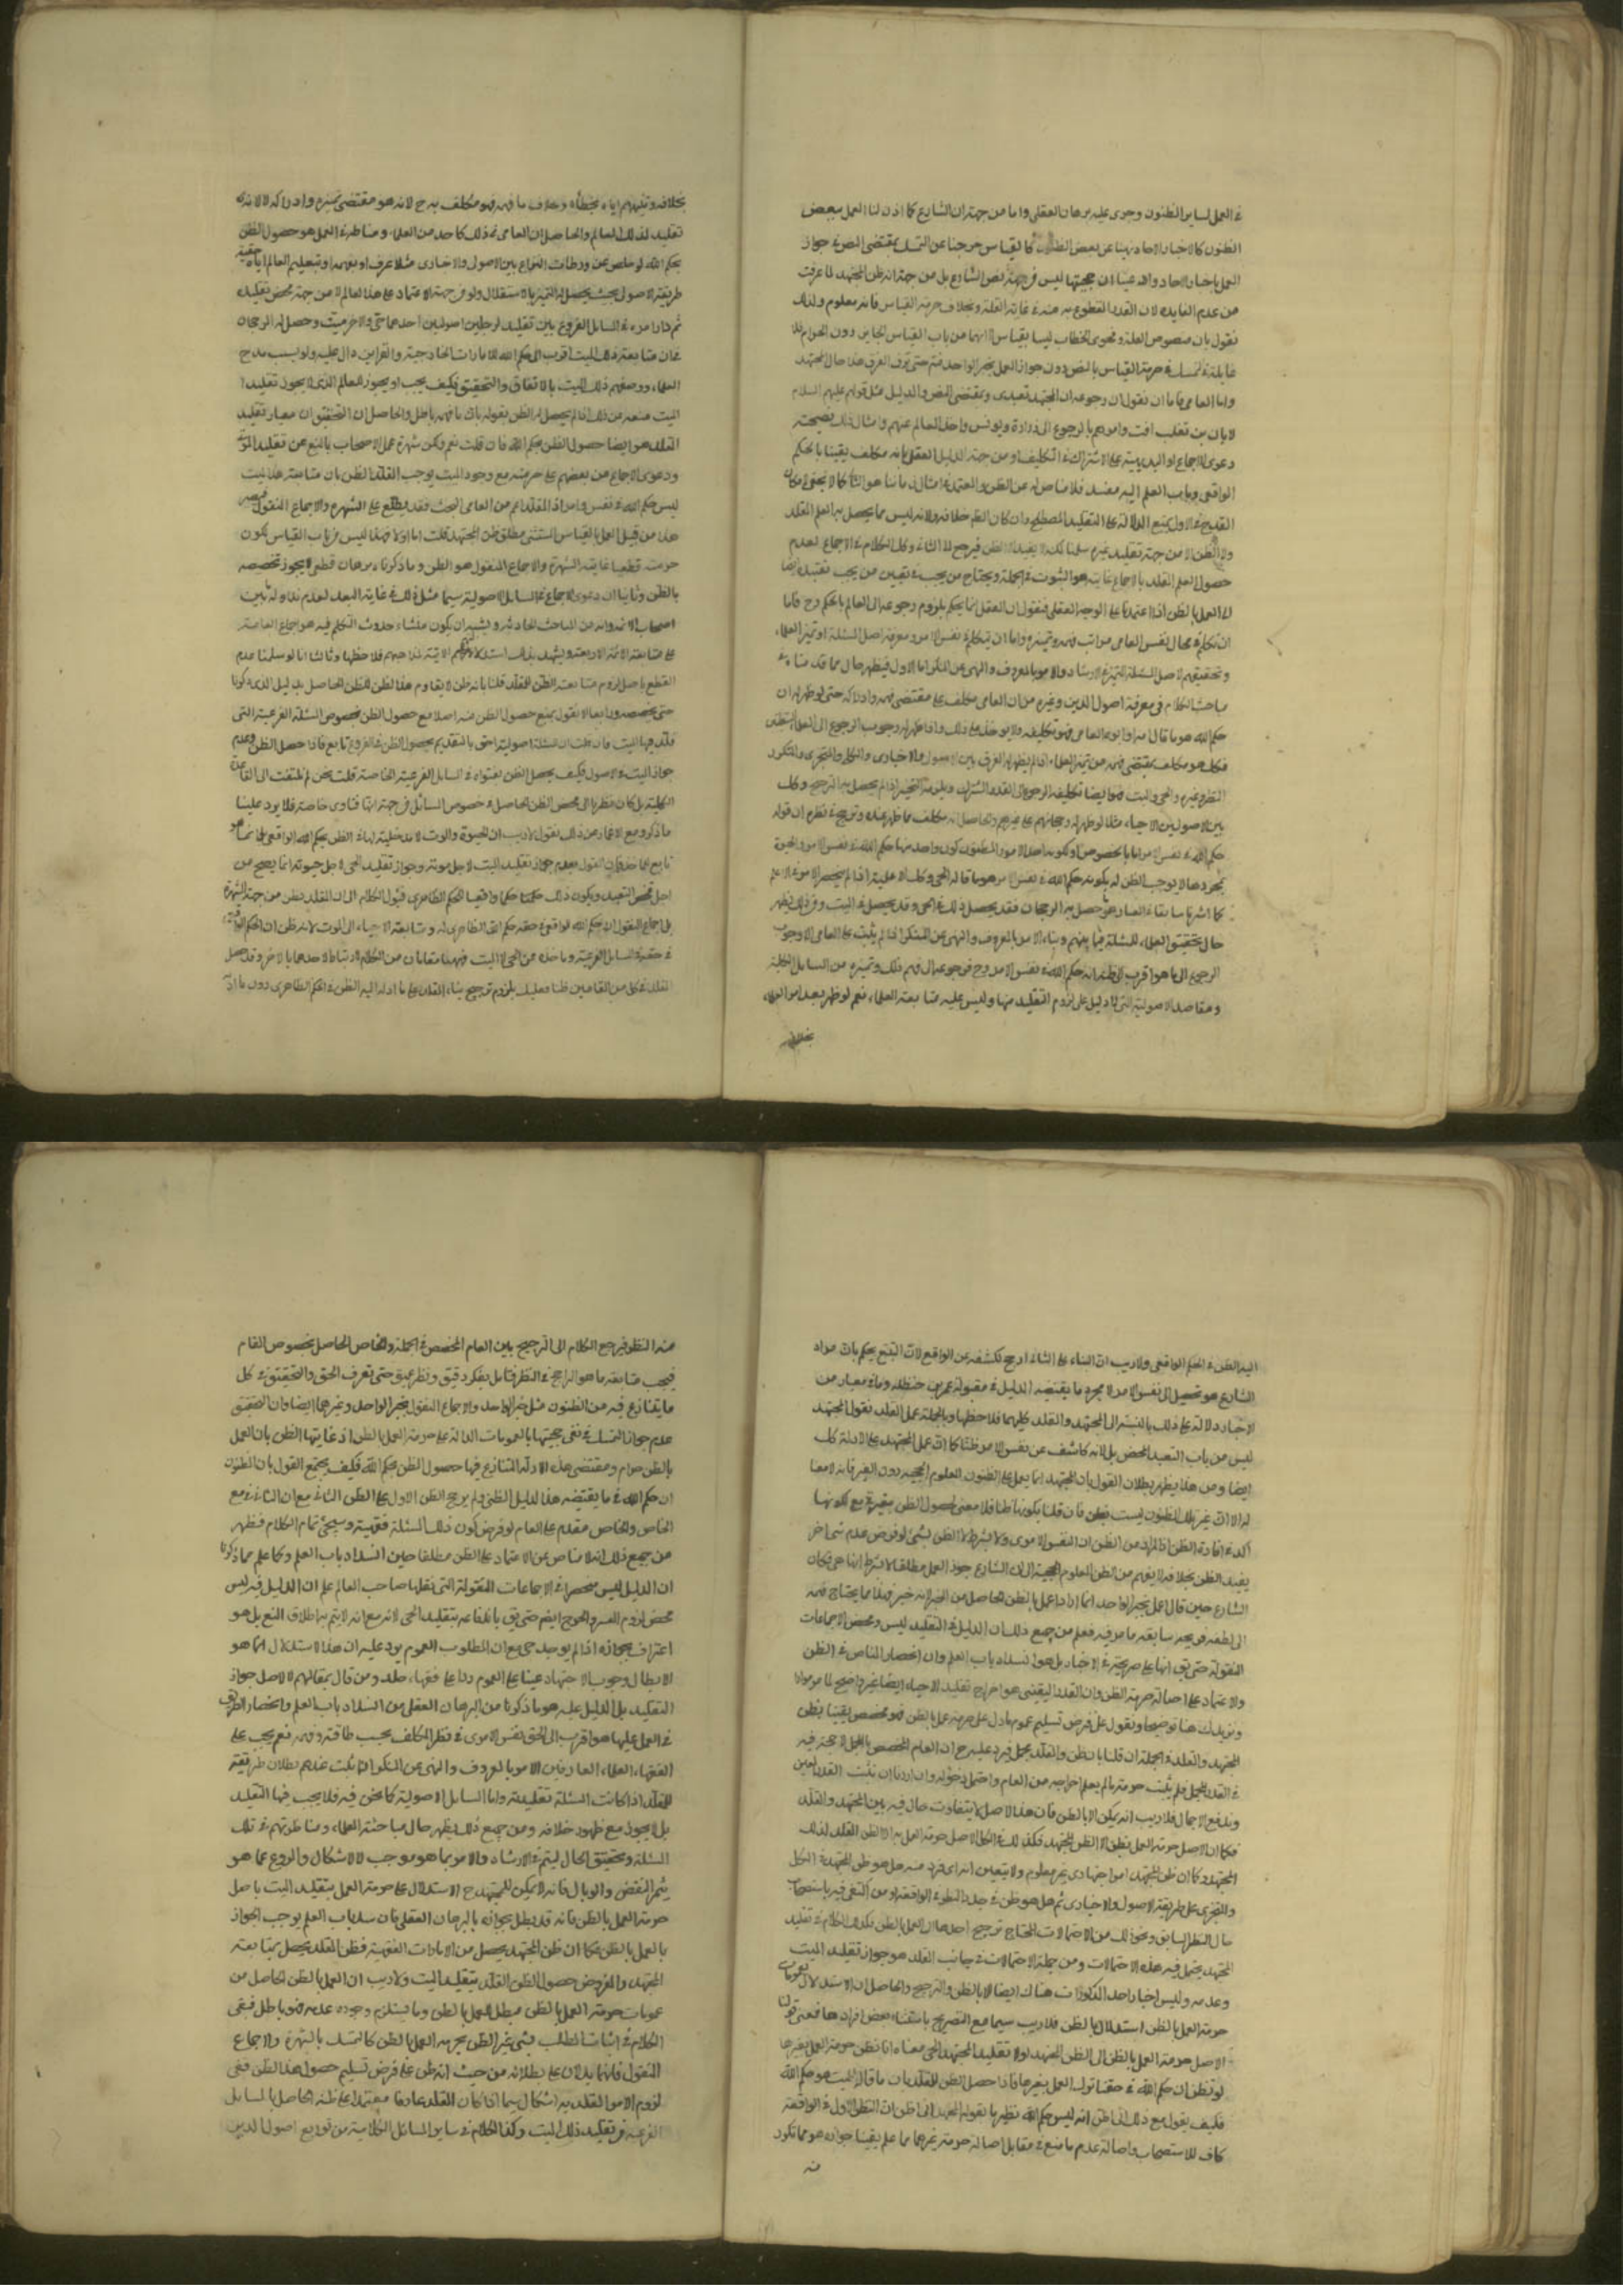 في العمل لساير الظنون وجرى عليه برهان العقلي واما من جهة ان الشارع كما اذن لنا العمل ببعض
الظنون كالاخبار الاحاد نهينا عن بعض الظنون كالقياس خرجنا عن التمسك بمقتضى النص في جواز
العمل باخبار الاحاد
من عدم الفايدة لان القدر المقطوع به منه في غاية القلة وبخلاف حرمة القياس فانه معلوم ولذلك
نقول بان منصوص العلة وفحوى الخطاب ليسا بقياس لا انهما من باب القياس الجايز دون الحرام
في حرمة القياس بالنص دون جواز العمل بخبر الواحد هذا حال المجتهد
واما العامي فاما ان نقول ان رجوعه الى المجتهد تعبدي وبمقتضى النص والدليل مثل قولهم عليهم السلام
لابان بن تغلب افت وامرهم بالرجوع الى زرارة ويونس واخذ العالم عنهم وامثال ذلك
دعوى الاجماع او البديهية على الاشتراك في التكليف او من جهة الدليل العقل بانه مكلف يقينا بالحكم
الواقعي وباب العلم اليه منسد فلا مناص له عن الظن والمعتمد في امثال زماننا هو الثاني كما لا يخفى
القدح في الاول بمنع الدلالة على التقليد المصطلح وان كان الظاهر خلافه ولانه ليس مما يحصل به العلم للمقلد
حصول العلم للمقلد بالاجماع غايته هو الثبوت في الجملة ويحتاج من يجب في تعيين من يجب تقليده
الى العمل بالظن اذا اعتمدنا على الوجه العقلي فنقول ان العقل انما يحكم بلزوم رجوعه الى العالم بالحكم وح فاما
ان نتكلم في حال نفس العامي مراتب فهمه وتميزه واما ان نتكلم في نفس الامر ومعرفة اصل المسئلة او تميز العلماء
وتحقيقهم لاصل المسئلة والامر بالمعروف والنهي عن المنكر اما الاول فيظهر حال مما قدمناه في
مباحث الكلام في معرفة اصول الدين وغيره من ان العامي مكلف على مقتضى فهمه وادراكه حتى لو ظهر له ان
حكم الله هو ما قال امه وابوه العامي فهو تكليفه ولا يؤاخذ على ذلك واذا ظهر له وجوب الرجوع الى العلماء
فكل هو مكلف بمقتضى فهمه من تميز العلماء اذا لم يظهر له الفرق بين الاصولي والاخباري والكل والمتجزي
وغيره والحي والميت فهو ايضا تكليفه الرجوع الى القدر المشترك ويلزمه التخيير اذا لم يحصل به الترجيح وكل
بين الاصوليين الاحياء مثلا لو ظهر له رجحانهم على غيرهم والحاصل انه مكلف بما ظهر عنده وترجح في نظره ان قوله
حكم الله في نفس الامر اما بالخصوص او بكونه احد الامور المظنون كون واحد منها حكم الله في نفس الامر
بمجردها لا يوجب الظن له بكونه حكم الله في نفس الامر هو ما قاله الحي وكل الاعلم اذا لم ينحصر الامر في الاعلم
كما اشرنا سابقا هو حصل به الرجحان فقد يحصل ذلك في الحي وقد يحصل في الميت ومن ذلك يظهر
حال تحقيق العلماء للمسئلة فيما بينهم وبناء الامر بالمعروف والنهي عن المنكر اذا لم يثبت على العامي الا وجوب
الرجوع الى ما هو اقرب في ظنه انه حكم الله في نفس الامر وح فرجوعه الى فهم ذلك وتميزه من المسايل الكلية
ومقاصد الاصولية التي لا دليل على لزوم التقليد فيها وليس عليه متابعة العلماء نعم لو ظهر بعد امر العلماء
بخلافه
بخلافه وتفهيمهم اياه بخطأه وخلاف ما فهمه فهو مكلف به ح لانه هو مقتضى تميزه وادراكه لا لانه
تقليد لذلك العالم والحاصل ان العامي في ذلك كاحد من العلماء ومناطه في العمل هو حصول الظن
بحكم الله لو خلص عن ورطات النزاع بين الاصولي والاخباري مثلا عرف او تفهمه او بتعليم العالم اياه حقية
طريقة الاصولي بحيث يحصل له التميز بالاستقلال ولو من جهة الاعتماد على هذا العالم لا من جهة محض تقليده
ثم دار امره في المسايل الفروع بين تقليد لرجلين اصوليين احدهما حي والاخر ميت وحصل له الرجحان
فان متابعة ذلك الميت اقرب الى حكم الله للامارات الخارجية والقراين دال عليه ولو بسبب مدح
العلماء ووصفهم ذلك الميت بالاتقان والتحقيق فكيف يجب او يجوز للعالم الذي لا يجوز تقليد
الميت منعه من ذلك اذا لم يحصل له الظن بقوله بان ما فهمه باطل والحاصل ان التحقيق ان معيار تقليد
المقلد هو ايضا حصول الظن بحكم الله فان قلت نعم ولكن شهرة عمل الاصحاب بالمنع عن تقليد الموتى
ودعوى الاجماع من بعضهم على حرمته مع وجود الميت يوجب للمقلد الظن بان متابعة هذا الميت
ليس حكم الله في نفس الامر اذ المقلد اعم من العامي البحت فقد يطلع على الشهرة والاجماع المنقول
هذا من قبيل العمل بالقياس المستثنى مطلق ظن المجتهد قلت اما اولا فهذا ليس من باب القياس لكون
حرمته قطعيا غايته الشهرة والاجماع المنقول هو الظن وما ذكرناه برهان قطعي لا يجوز تخصيصه
بالظن وثانيا ان دعوى الاجماع في المسايل الاصولية سيما مثل ذلك في غاية البعد لعدم تداوله بين
اصحاب الائمة وانه من المباحث الحادثة ويشبه ان يكون منشاء حدوث التكلم فيه هو اجماع العامة
على متابعة الائمة الاربعة ويشهد بذلك استدلالاتهم الاتية فلاحظها وثالثا انا لو سلمنا عدم
القطع باصل لزوم متابعة الظن للمقلد قلنا بانه ظن لا يقاوم هذا الظن الظن الحاصل بدليل الذي ذكرنا
حتى يخصصه ورابعا لا نقول بمنع حصول الظن منه اصلا مع حصول الظن بخصوص المسئلة الفرعية التي
قلد فيها الميت فان قلت ان المسئلة اصولية احق بالتقديم بحصول الظن في الفروع تابع فاذا حصل الظن بعدم
جواز الميت في الاصول فكيف يحصل الظن بفتواه في المسايل الفرعية الخاصة قلت نحن لم نلتفت الى القاعدة
الكلية بل كان نظرنا الى محض الظن الحاصل في خصوص المسائل من جهة انها فتاوى خاصة فلا يرد علينا
ما ذكره مع الاغماز من ذلك نقول لا ريب ان الحيوة والموت لا مدخلية لهما في الظن بحكم الله الواقعي
القول بعدم جواز تقليد الميت لاجل موته وجواز تقليد الحي لاجل حيوته انما يصح من
اجل محض التعبد ويكون ذلك حكما واقعيا للحكم الظاهري فيؤل الكلام الى ان المقلد يظن من جهة الشهرة
بل اجماع المنقول ان حكم الله الواقعي في حقه حكم الله الظاهري له ومتابعة الاحياء الى الموت لانه ظن ان الحكم
في حقه في المسايل الفرعية وماخذه عن الحي لا الميت فههنا مقامان من الكلام لا ارتباط لاحدهما بالاخر وقد حصل
للمقلد في كل من المقامين ظنا فعليك بلزوم ترجيح بناء المقلد على ما اداه اليه الظن في الحكم الظاهري دون ما اداه
اليه الظن في الحكم الواقعي ولا ريب ان البناء على الثاني ارجح لكشفه عن الواقع لان التتبع يحكم بان مراد
الشارع هو تحصيل الى نفس الامر لا مجرد ما يقتضيه الدليل في مقبولة عمر بن حنظلة وما في معياره من
الاخبار دلالة على ذلك بالنسبة الى المجتهد والمقلد كليهما فلاحظها وبالجملة عمل المقلد بقول المجتهد
ليس من باب التعبد المحض بل لانه كاشف عن نفس الامر ظنا كما ان عمل المجتهد على الادلة كك
ايضا ومن هذا يظهر بطلان القول بان المجتهد انما يعمل على الظنون المعلوم الحجية دون الغير فانه لا معنا
له الا ان غير تلك الظنون ليست بظن فان قلنا بكونها ظنا فلا معنى لحصول الظن بغيره مع كونها
اكد في افادة الظن اذ المراد من الظن ان النفس الامري ولا بشرط لا الظن بشئ لو فرض عدم شئ اخر
يفيد الظن بخلافه لا يفهم من الظن المعلوم الحجية الا ان الشارع جوز العمل مطلقا لا بشرط
الشارع حين قال اعمل بخبر الواحد انما اراد اعمل بالظن الحاصل من الخبر لانه خبر
فعلم من جميع ذلك ان الدليل في التقليد ليس محض الاجماعات
المنقولة حتى يق انها على صريحة في الاخبار بل هو انسداد باب العلم وان انحصار المناص في الظن
والاعتماد على اصالة حرمة الظن وان القدر اليقيني هو اخراج تقليد الاحياء ايضا غير واضح لما مر مرارا
ونزيدك هنا توضيحا ونقول على فرض تسليم عموم ما دل على حرمة عمل بالظن فهو مخصص يقينا بظن
المجتهد والمقلد في الجملة ان قلنا بان ظن المقلد مجمل فيرد عليه ح ان العام المخصص بالمجمل لا حجة فيه
في القدر المجمل فلم يثبت حرمة ما لم يعلم اخراجه من العام واحتمل دخوله وان اردنا ان نثبت القدر المعين
وندفع الاجمال فلا ريب انه لا يمكن الا بالظن فان هذا الاصل لا يتفاوت حال فيه بين المجتهد والمقلد
فكما ان الاصل حرمة العمل بظن الا الظن المجتهد فكذلك في الكل الاصل حرمة العمل به الا الظن المقلد لذلك
المجتهد وكما ان ظن المجتهد امر اجتهادي غير معلوم ولا يتعين انه اي فرد منه هل هو ظن المجتهد في الكل
والمتجزي على طريقة الاصولي والاخباري ثم هل هو ظن في
حال النظر السابق ونحو ذلك من الاحتمالات المحتاج ترجيح احدها الى العمل بالظن فكذلك الكلام في تقليد
المجتهد يحتمل فيه هذه الاحتمالات ومن جملة الاحتمالات في جانب المقلد هو جواز تقليد الميت
وعدمه وليس اخيار احد المذكورات هناك ايضا الا بالظن والترجيح والحاصل ان الاستدلال بعمومات
حرمة العمل بالظن استدلال بالظن فلا ريب سيما مع التصريح باستثناء بعض افراده ها فمعنى قولنا
الاصل حرمة العمل بالظن الا الظن المجتهد او لا تقليد المجتهد الحي معناه انا نظن حرمة العمل بغيرها
لو نظن ان حكم الله في حقنا ترك العمل بغيرها فاذا حصل الظن للمقلد بان ما قاله الميت هو حكم الله
فكيف يقول مع ذلك اني اظن انه ليس حكم الله نظير ما يقوله المجتهد اني اظن ان الظن الاول في الواقعة
كاف للاستصحاب واصالة عدم ما منع في مقابل اصالة حرمة غيرها مما علم يقينا جوازه هو مما تكرر
منه
منه النظر فيرجع الكلام الى الترجيح بين العام المخصص في الجملة والخاص الحاصل بخصوص المقام
فيجب متابعة ما هو الراجح في النظر فتامل بفكر دقيق ونظر عميق حتى تعرف الحق والتحقيق في كل
ما يتنازع فيه من الظنون مثل خبر الواحد والاجماع المنقول بخبر الواحد وغيرهما ايضا وان التحقيق
عدم جواز التمسك في نفي حجيتها بالعمومات الدالة على حرمة العمل بالظن اذ غايتها الظن بان العمل
بالظن حرام ومقتضى هذه الادلة المتنازع فيها حصول الظن بحكم الله فكيف يجتمع القول بان المظنون
ان حكم الله في ما يقتضيه هذا الدليل الظني ولم يرجح الظن الاول على الظن الثاني مع ان الثاني مع
الخاص والخاص مقدم على العام لو فرض كون ذلك المسئلة فقهية وسيجئ تمام الكلام فظهر
من جميع ذلك انه لا مناص عن الاعتماد على الظن مطلقا حين انسداد باب العلم وكما علم مما ذكرنا
ان الدليل ليس منحصرا في الاجماعات المنقولة التي نقلها صاحب المعالم علم ان الدليل فيه ليس
محض لزوم العسر والحرج ايضا حتى يق باندفاعه بتقليد الحي لانه مع انه لا يتم به اطلاق المنع بل هو
اعتراف بجوازه اذا لم يوجد حي مع ان المطلوب العموم يرد عليه ان هذا الاستدلال انما هو
لابطال وجوب الاجتهاد عينا على العموم ردا على فقهاء حلب ومن قال بمقالهم لا لاصل جواز
التقليد بل الدليل عليه هو ما ذكرنا من البرهان العقل من انسداد باب العلم وانحصار الطريق
في العمل عليها هو اقرب الى الحق نفس الامري في نظر المكلف بحسب طاقته وفهمه نعم يجب على
الفقهاء العلماء العارفين الامر بالمعروف والنهي عن المنكر اذا ثبت عندهم بطلان طريقة
المقلد اذا كانت المسئلة تقليدية واما المسايل الاصولية كما نحن فيه فلا يجب فيها التقليد
بل لا يجوز مع ظهور خلافه ومن جميع ذلك يظهر حال مباحثة العلماء ومناظرتهم في تلك
المسئلة وتحقيق الحال ليتم في الارشاد والامر بما هو موجب للاشكال والروع عما هو
يثمر النقض والوبال فانه لا يمكن للمجتهد ح الاستدلال على حرمة العمل بتقليد الميت باصل
حرمة العمل بالظن فانه قد بطل بجوازه بالبرهان العقلي فان سد باب العلم يوجب الجواز
بالعمل بالظن فكما ان ظن المجتهد يحصل من الامارات الفقهية فظن المقلد يحصل بمتابعة
المجتهد والمفروض حصول الظن المقلد بتقليد الميت ولا ريب ان العمل بالظن الحاصل من
عمومات حرمة العمل بالظن مبطل للعمل بالظن وما يستلزم وجوده عدمه فهو باطل فبقى
الكلام في اثبات المطلب بشئ غير الظن بحرمة العمل بالظن كالتمسك بالشهرة والاجماع
المنقول فانهما يدلان على بطلانه من حيث انه ظن على فرض تسليم حصول هذا الظن ففي
لزوم الامر المقلد به اشكال سيما اذا كان المقلد عارفا معتمدا على ظنه الحاصل بالمسايل
الفرعية من تقليد ذلك الميت وكذا الكلام في ساير المسائل الكلامية من فروع اصول الدين